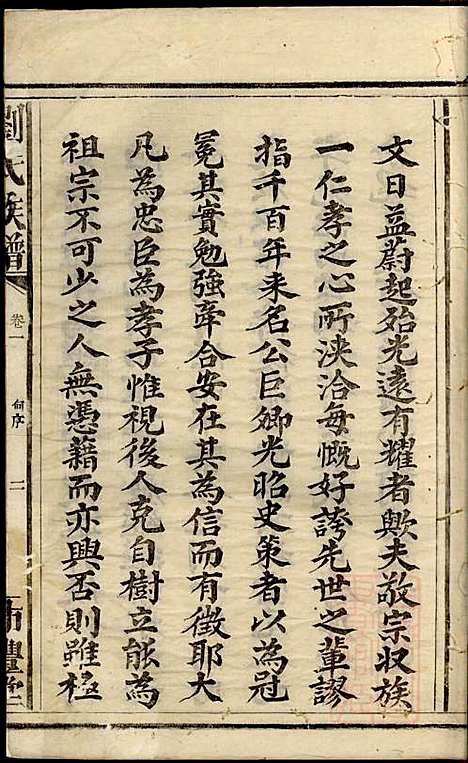 文日益蔚起始光遠有耀者歟夫敬宗収族
一仁孝之心所浹洽每慨好誇先世之輩謬
指千百年来名公巨卿光昭史策者以為冠
冕其實勉強牽合安在其為信而有徵耶大
凡為忠臣為孝子惟視後人克自樹立能為
祖宗不可少之人無憑藉而亦興否則雖極
劉氏族譜
卷一
序
二
豐堂